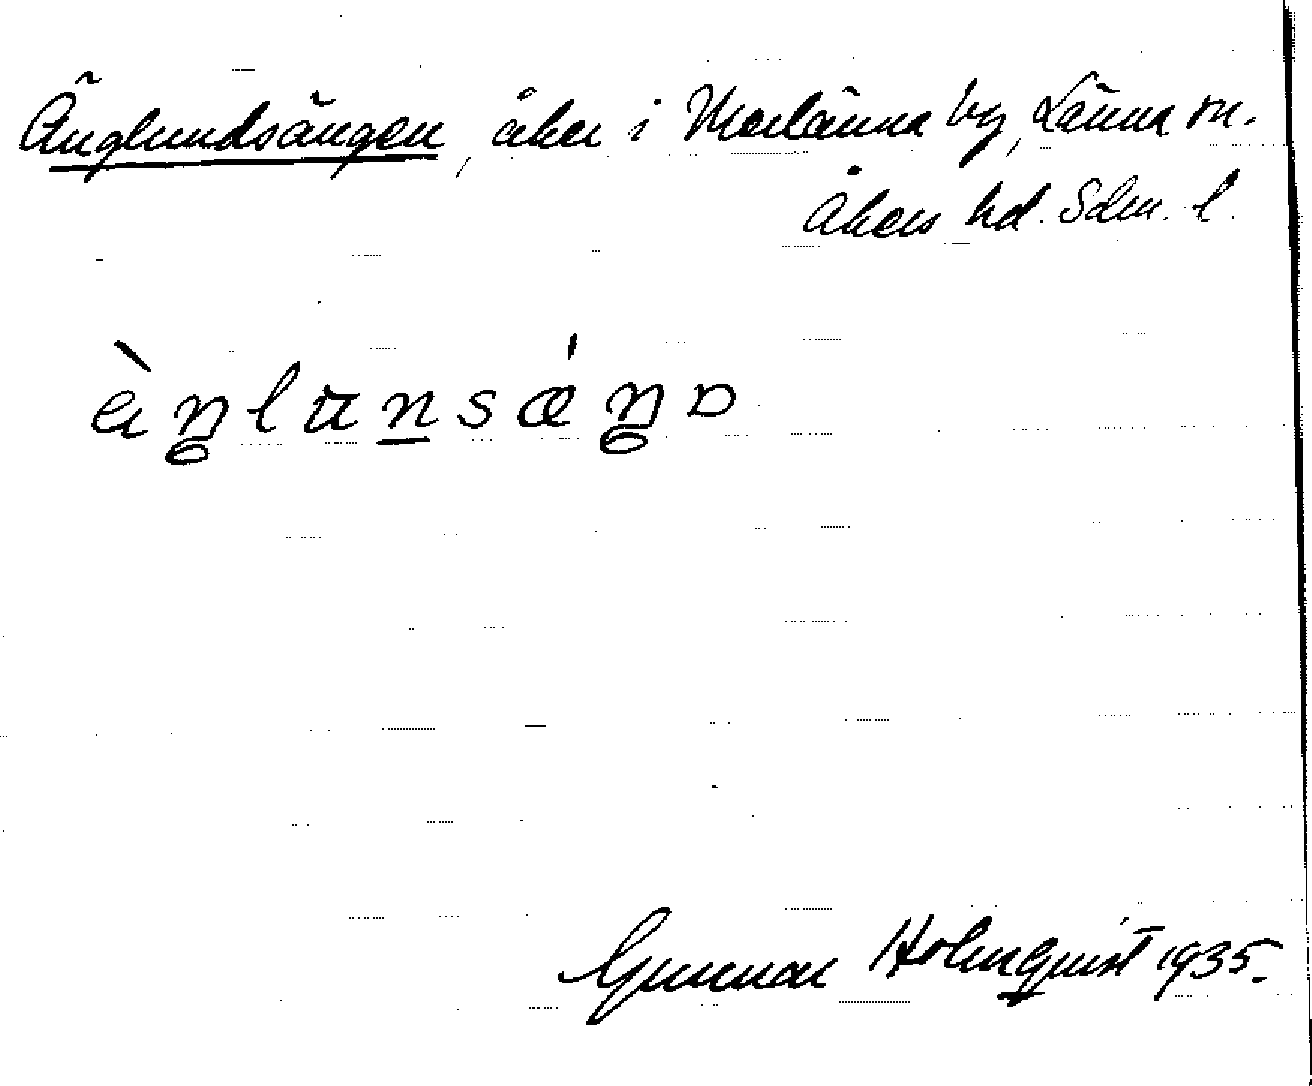 Änglundsängen, åker i Merlänna by, Länna sn.
Åkers hd. Sdm. l.
Gunnar Holmquist 1935.